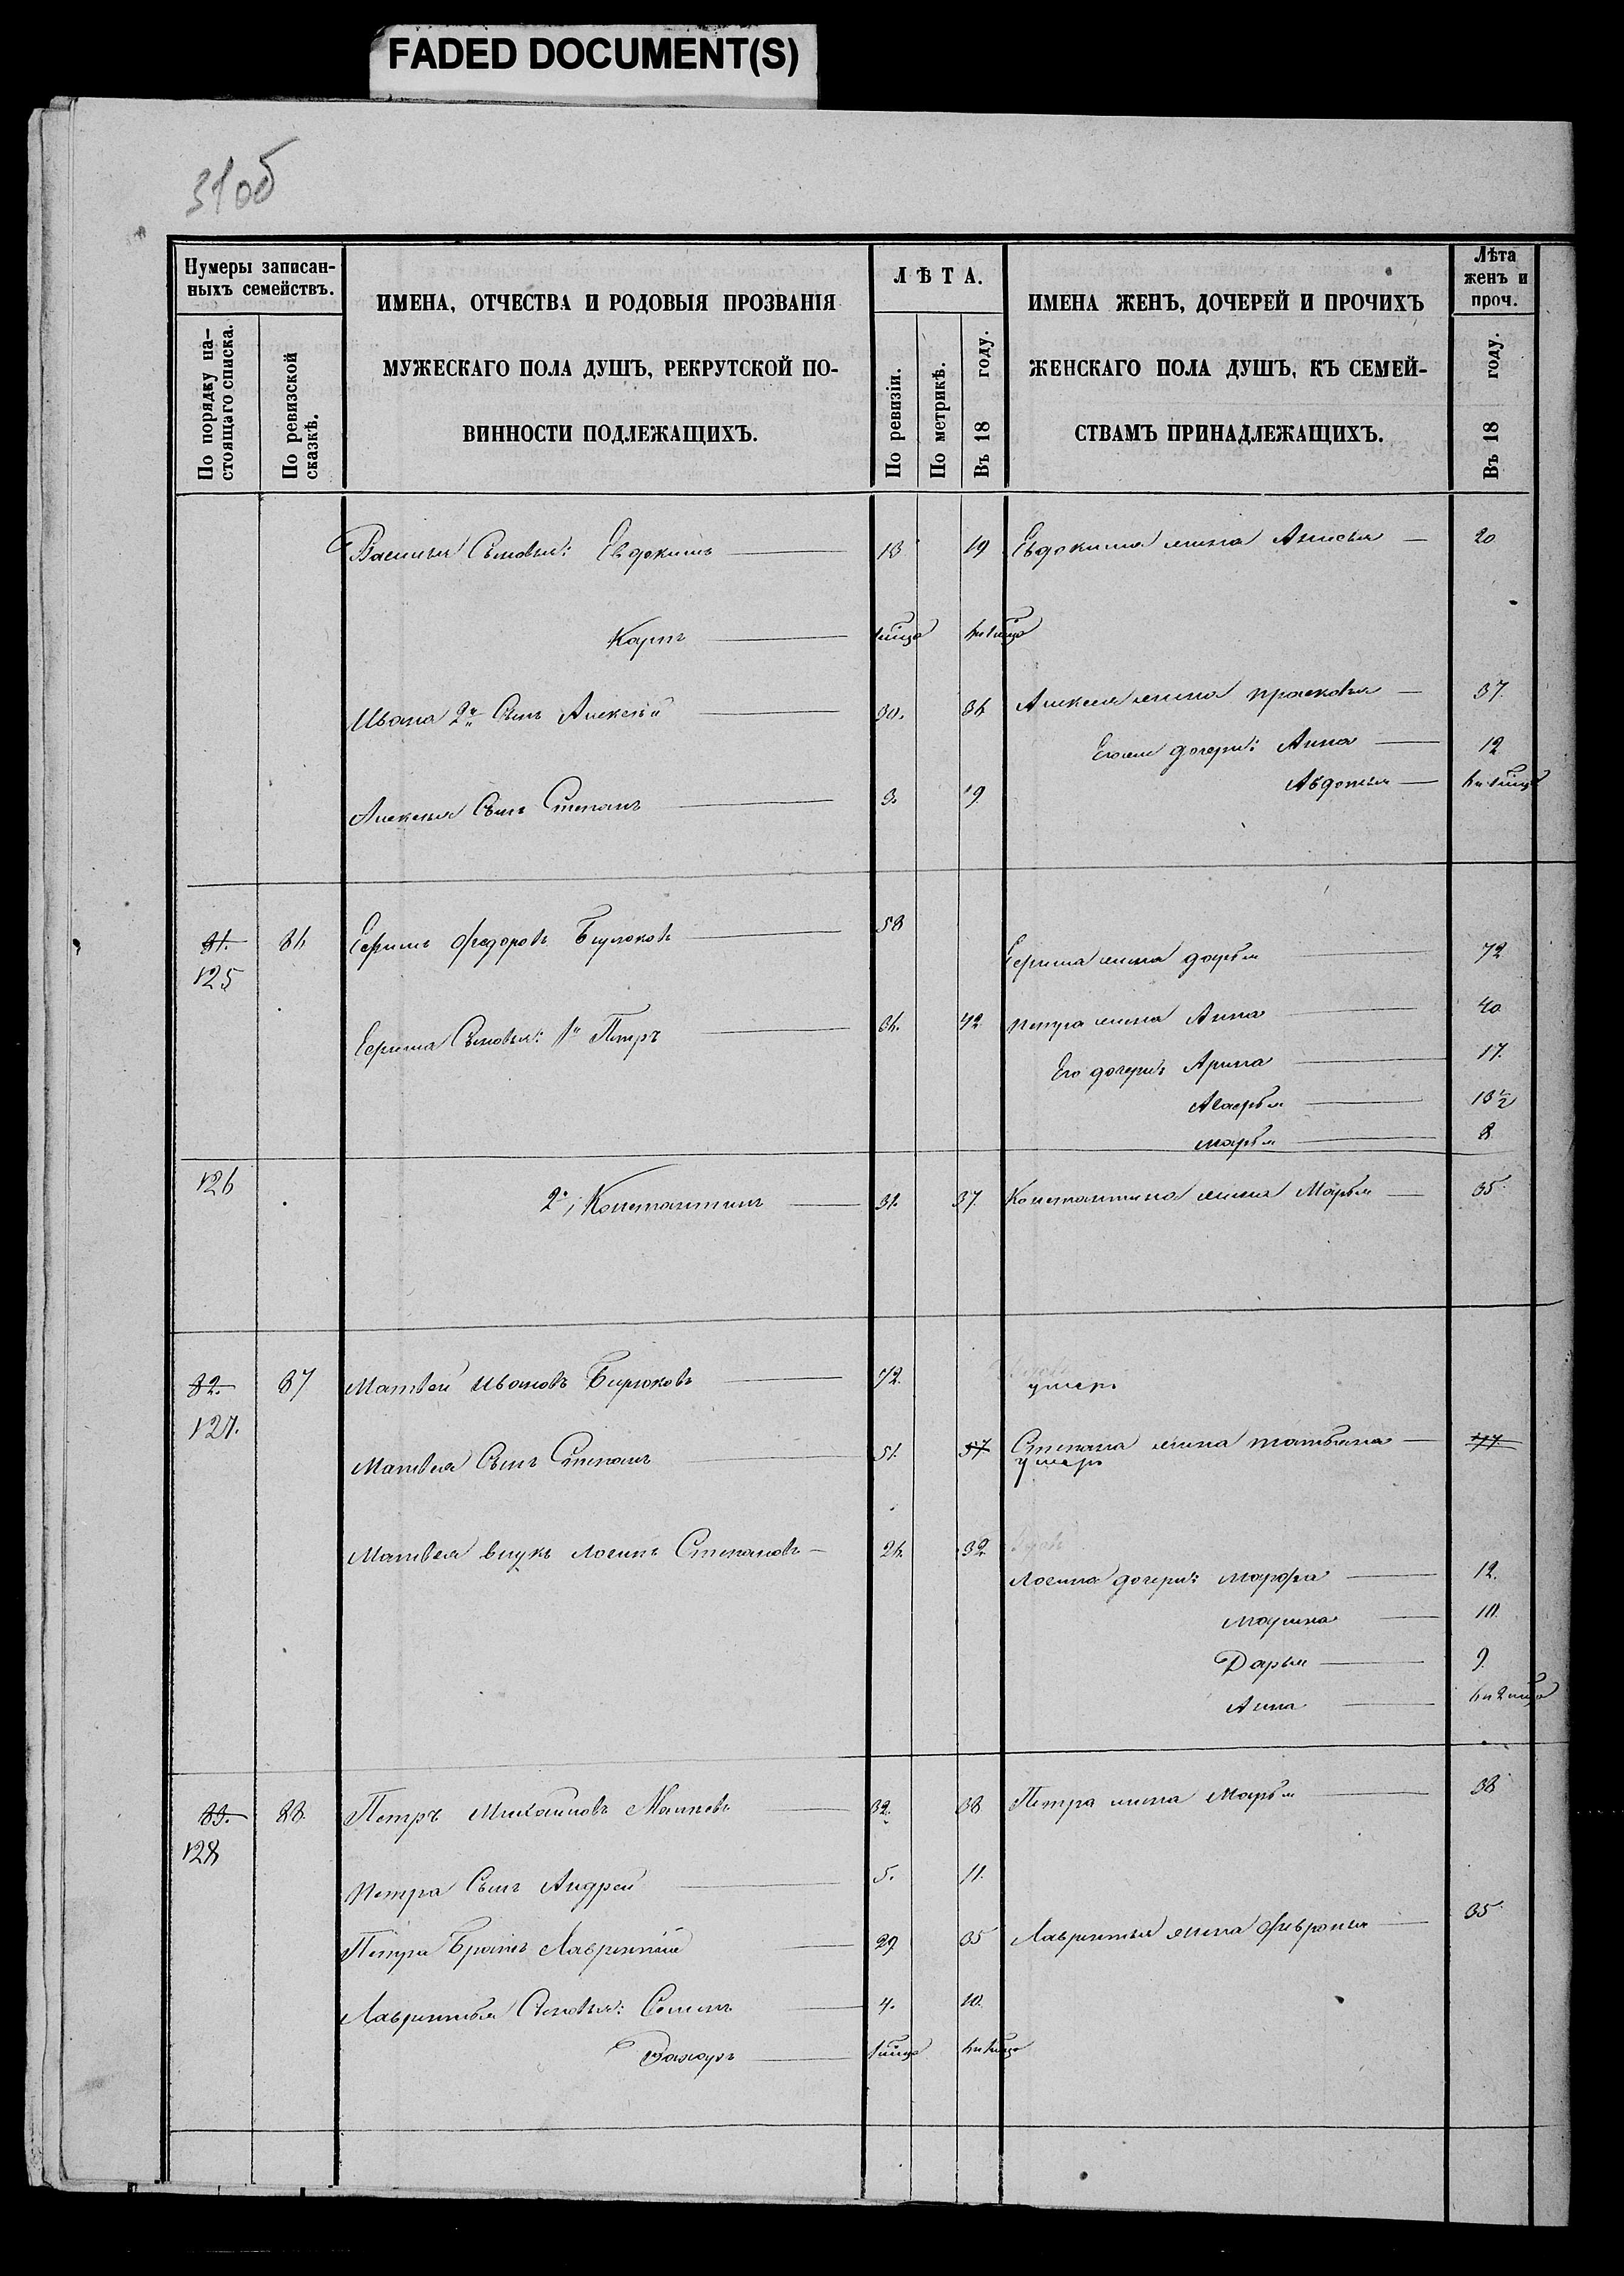 FADED DOCUMENT(S)
31об
Нумеры записан-
ныхъ семействъ.
По порядку на-
стоящаго списка.
По ревизской
сказкѣ.
ИМЕНА, ОТЧЕСТВА И РОДОВЫЯ ПРОЗВАНІЯ
МУЖЕСКАГО ПОЛА ДУШЪ, РЕКРУТСКОЙ ПО-
ВИННОСТИ ПОДЛЕЖАЩИХЪ.
ЛѢТА.
По ревизіи.
По метрикѣ.
Въ 18 году.
ИМЕНА ЖЕНЪ, ДОЧЕРЕЙ И ПРОЧИХЪ
ЖЕНСКАГО ПОЛА ДУШЪ, КЪ СЕМЕЙ-
СТВАМЪ ПРИНАДЛЕЖАЩИХЪ.
Лѣта
женъ и
проч.
Въ 18 году.
Василья Сыновья: Евдокимъ 13 19 Евдокима жена Анисья 20
Карпъ
Ивана 2й Сынъ Алексѣй 30. 36 Алексея жена прасковья 37
дочери: Анна 12
Авдотья
Алексея Сынъ Степанъ 3. 9
81. 86 Ефимъ Федоровъ Бирюковъ 58
125
Ефима жена дарья 72
Ефима Сыновья: 1й Петръ 36. 42 петра жена Анна 40
Его дочери: Арина 17.
13½
марья 8
126 2й, Константинъ 31. 37 Константина жена Марья 35
82. 87 Матвей Ивановъ Бирюковъ 72. умеръ
127.
Матвея Сынъ Степанъ 51. 57 Степана жена татьяна
умеръ
Матвея внукъ логинъ Степановъ 26. 32
Логина дочери: марфа 12.
марина 10.
Дарья 9.
Анна
83. 88. Петръ Михайловъ 32. 38 Петра жена Марья 38
128
петра Сынъ Андрей 5. 11.
Петра Братъ Лаврентій 29 35 Лаврентья жена Февронья 35
Лаврентья Сыновья: Семенъ 4. 10.
Захаръ